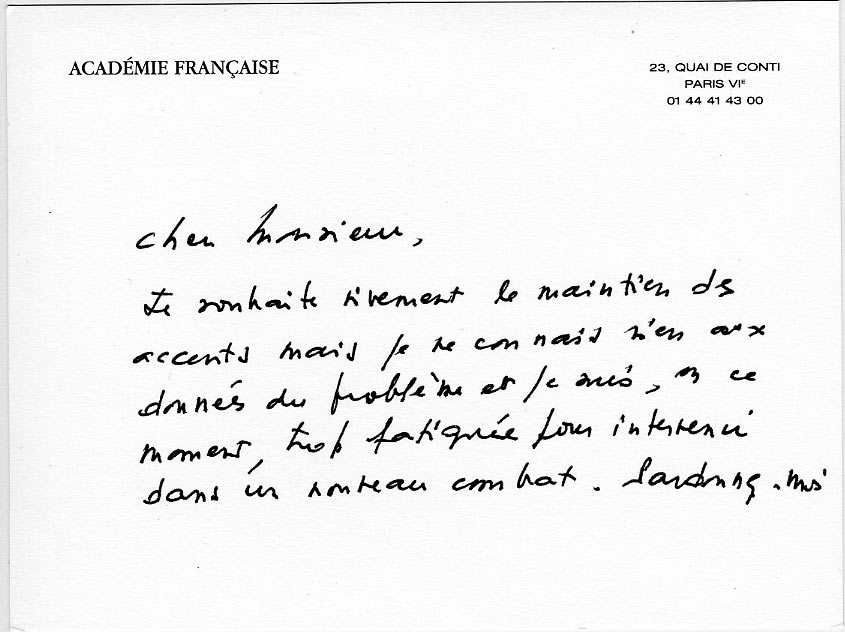 ACADÉMIE FRANÇAISE
23, QUAI DE CONTI
PARIS VIE
01 44 41 43 00
Cher Monsieur,
Je souhaite vivement le maintien des
accents mais je ne connais rien aux
donnés du problème et je suis, en ce
moment, trop fatiguée pour intervenir
dans un nouveau combat. Pardonnez-moi